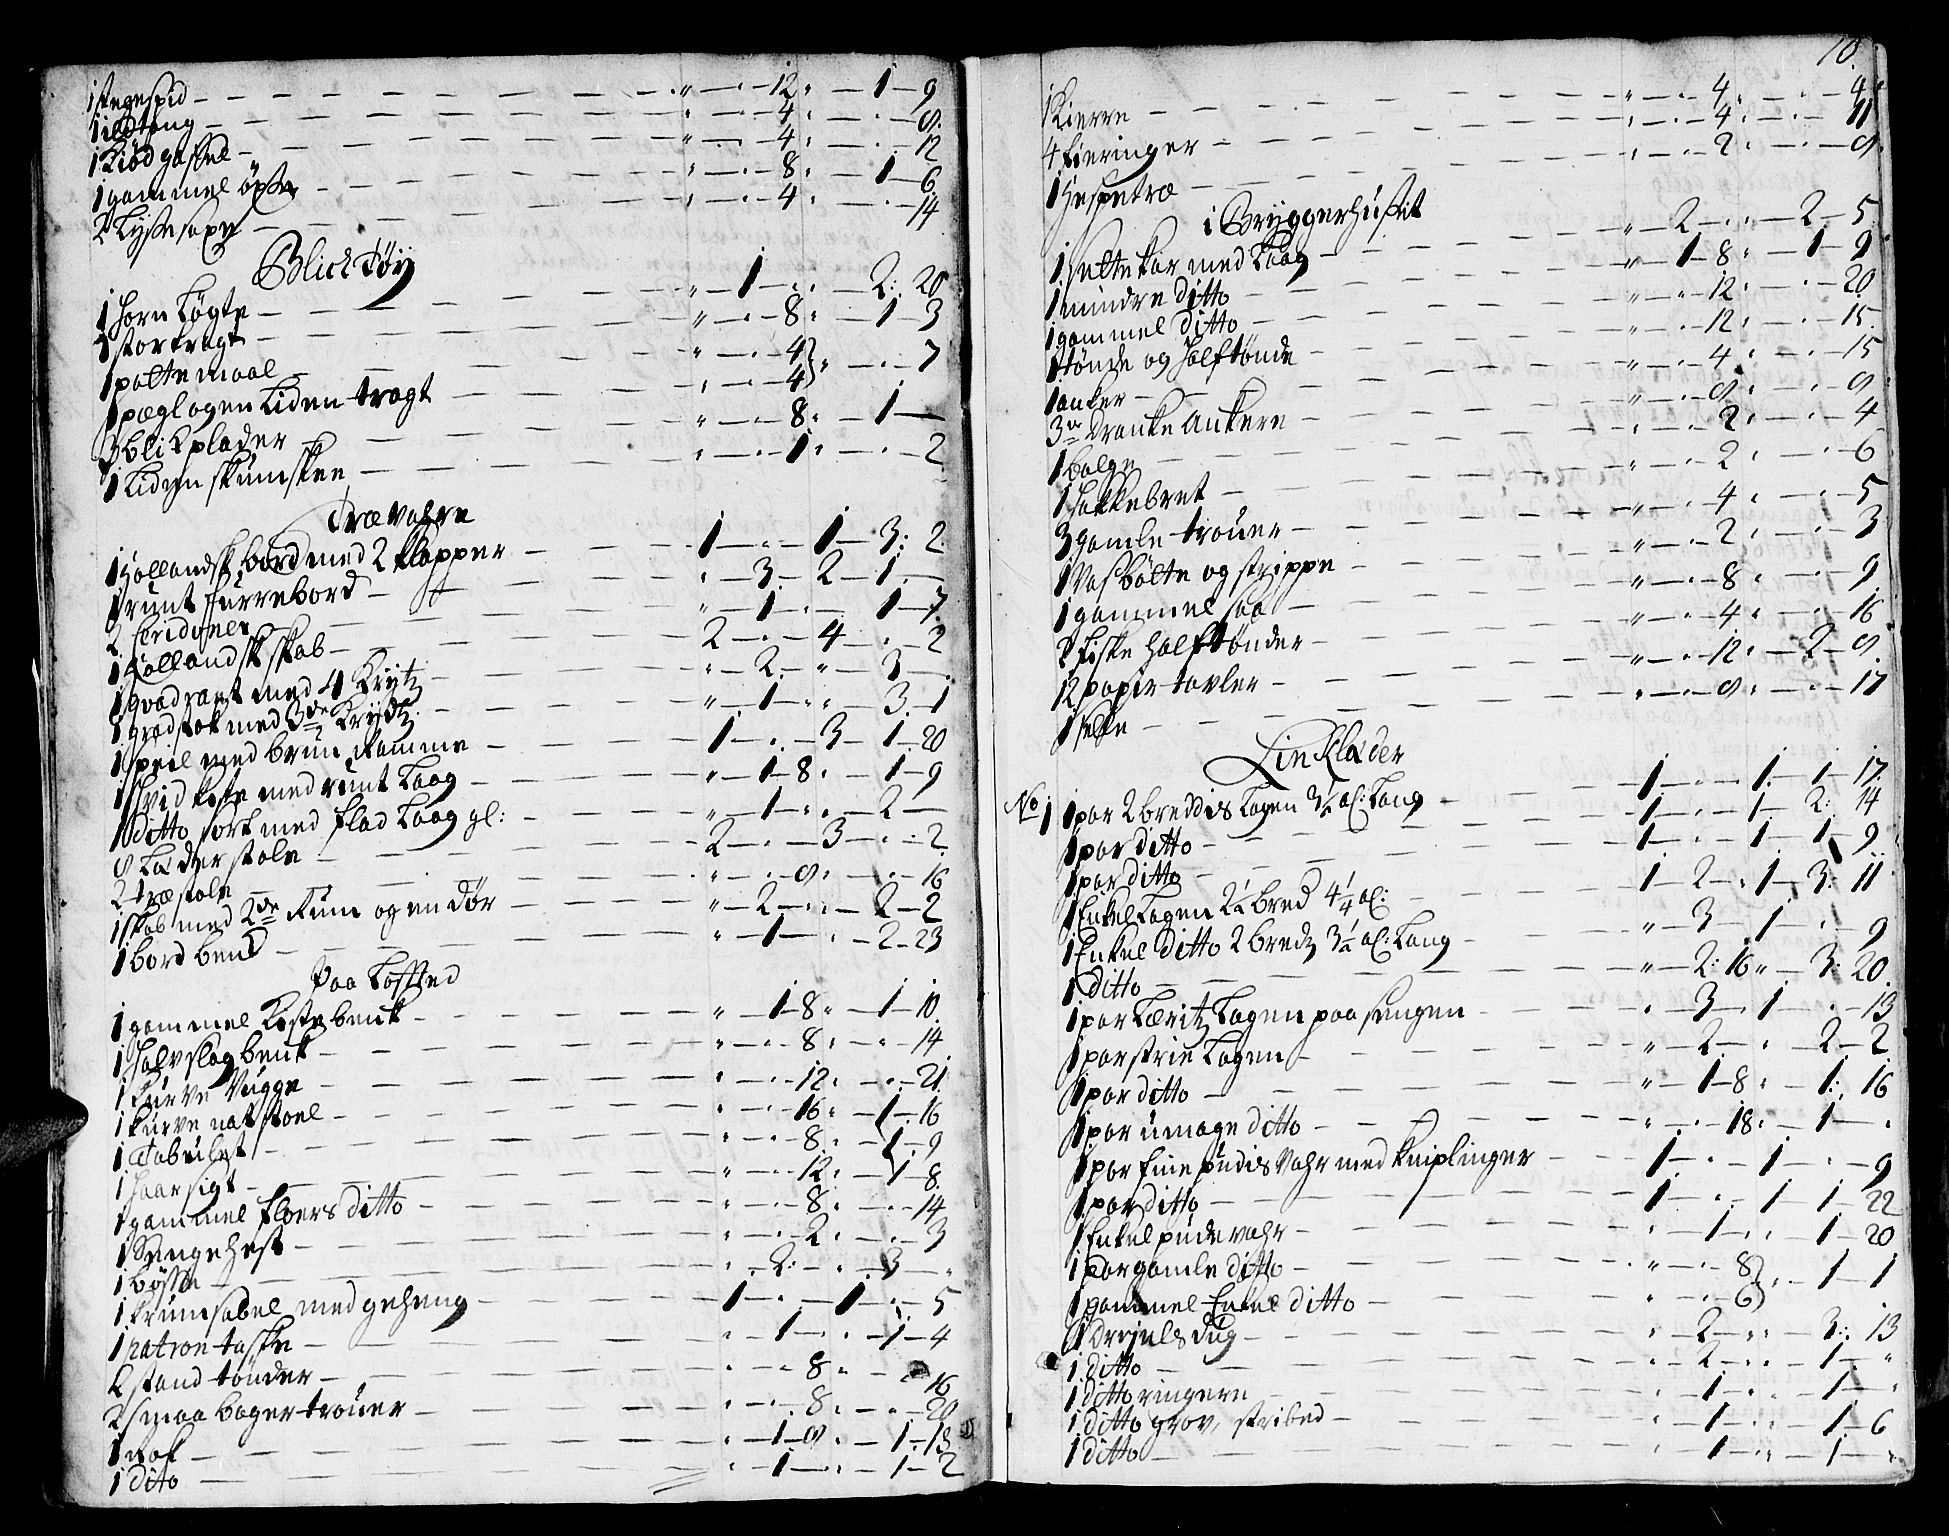 1 stegespid — " — " — 12 " — 1 — 9
1 ildtang — " — " — 4 " — " — 8
1 Kiødgaffel — " — " — 4 " — " — 12
1 gammel øxse — " — " — 8 " — 1 — 6
2 Lyssesaxe — " — " — 4 " — " — 14
Blick Tøÿ
1 horn Løgte — " — 1 — " — 2 : 20
1 stor tragt — " — " — 8 " — 1 — 3
1 pottemaal — " — " — 4
1 pægl og en Liden tragt — " — " — 4 " — " — 7
3 blikplader — " — " — 8 " — 1 —
1 Liden skumskee — " — " — 1 " — " — 2
Træ Vahre
1 Hollandsk bord med 2 Klapper — 1 — " — 1 — 3 : 2
1 runt Furrebord — " — 3 — 2 — 1 —
2 Feridoner — " — 1 — " — 1 — 7
1 Hollandsk skab — 2 — " — 4 — " — 2
1 qvadrant med 4 Krytz — " — 2 — " — 3 —
1 gradstok med 3de Krydtz — " — 1 — " — 3 — 1
1 speil med brun Ramme — 1 — " — 3 — 1 — 20
1 hvid kiste med runt Laag — " — 1 — 8 " — 1 — 9
1 ditto sort med flad Laag gl: — " — 1 — " — 2 —
8 Læderstole — 2 — " — 3 — " — 2
2 træstole — " — " — 8 " — " — 16
1 skab med 2de Rum og en dør — " — 2 — " — 2 — 2
1 bord benk — " — 1 — " — 2 — 23
Paa Lofted
1 gammel Kistebenk — " — 1 — 8 " — 1 — 10
1 halv slagbenk — " — " — 8 " — " — 14
1 kurve Vugge — " — " — 12 " — " — 21
1 kurve natstoel — " — " — 16 " — 1 — 16
1 Taburet — " — " — 8 " — 1 — 9
1 haarsigt — " — " — 12 " — 1 — 8
1 gammel floers ditto — " — " — 8 " — " — 14
1 Sengehest — " — " — 2 " — " — 3
1 bøsse — " — 2 — " — 3 — "
1 krumsabel med geheng — 1 — " — 1 — " — 5
1 patron taske — " — 1 — " — 1 — 4
2 stand tønder — " — " — 8 " — " — 16
2 smaa bagertrouer — " — " — 8 " — " — 20
1 Rok — " — 1 — 8 " — 1 — 13
1 dito — " — 1 — " — 1 — 2
10
1 Kierre — " — " — 4 " — " — 4
4 fieringer — " — " — 4 " — " — 11
1 Hespetræ — " — " — 2 " — " — 8
i Bryggerhuset
1 settekar med Laag — " — 2 — " — 2 — 5
1 mindre ditto — " — 1 — 8 " — 1 — 9
1 gammel ditto — " — " — 12 " — " — 20
1 tønde og half tønde — " — " — 12 " — " — 15
1 anker — " — " — 4 " — " — 15
3de dranke Ankere — " — " — 8 " — " — 8
1 balge — " — " — 2 " — " — 4
1 hakkebret — " — " — 2 " — " — 6
3 gamle trouer — " — " — 4 " — " — 5
1 Vasbøtte og strippe — " — " — 2 " — " — 3
1 gammel saa — " — " — 8 " — " — 9
2 fiske half tønder — " — " — 4 " — " — 16
12 papir tavler — " — " — 12 " — 2 — 8
1 selke — " — " — 8 " — " — 17
Lin Klæder
No 1 1 par 2 breddis Lagen 3 1/2 al: Lang — 1 — " — 1 — 1 — 17
1 par ditto — 1 — " — 1 — 2 : 14
1 par ditto — 1 — " — 1 — 1 — 9
1 Enkel Lagen 2 1/2 bred 4 1/4 al: — 1 — 2 — " 1 — 3 : 11
1 Enkel ditto 2 bredz 3 1/2 al: Lang — " — 3 — 1 — " — 9
1 ditto — " — 2 : 16 " — 3 : 20
1 par Læritz Lagen paa sengen — " — 3 — 1 — " — 13
1 par strie Lagen — " — 2 — " — 2 — 2
1 par ditto — " — 1 — 8 " — 1 : 16
1 par umage ditto — " — " — 18 " — 1 — "
1 par fine pudis Vahr med kniplinger — 1 — " — 1 — " — 9
1 par ditto — 1 — " — 1 — 1 — 22
1 Enkel pudevahr — " — 1 — " — 1 — 20
1 par gamle ditto — " — " — 8
1 gammel Enkel ditto — " — " — 6 " — 1 — 1
1 Drejels Dug — " — 2 — " — 3 : 13
1 ditto — " — 2 — " — 1 — "
1 ditto ringere — " — 1 — " — 1 — "
1 ditto grov, stribed — " — 1 — " — 1 — 6
1 ditto — " — 1 — " — 1 — "